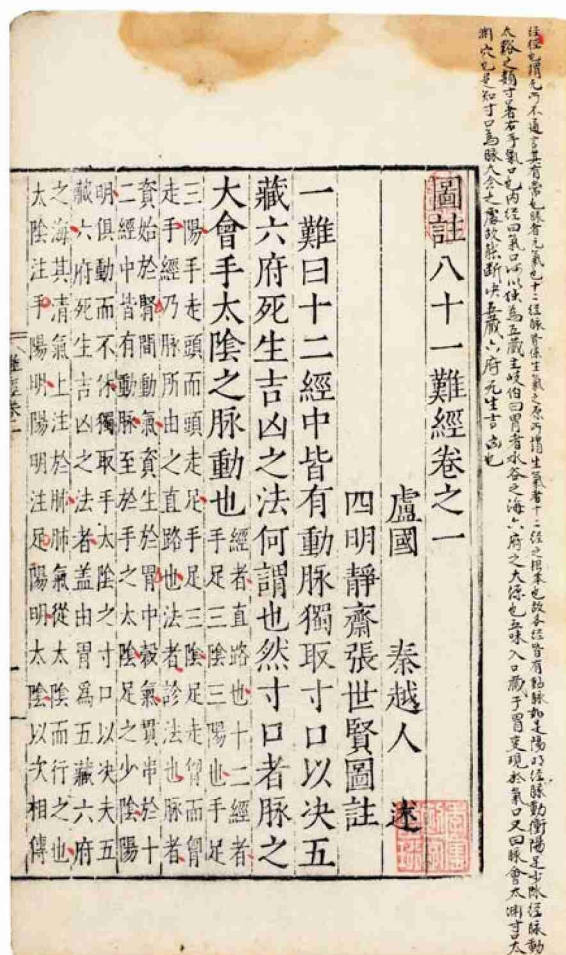 經徑也謂元所不通言其有常也脉者元氣也十二經脉皆係生氣之原所謂生氣者十二經之根本也故各經皆有動脉如足陽明經脉動衝陽足少陰經脉動
太谿之類寸者右手氣口也内經曰氣口何以独為五藏主岐伯曰胃者水谷之海六府之大源也五味入口藏于胃変現於氣口又曰脉會太渊寸口太
渊穴也是知寸口為脉大会之處故能断决五藏六府死生吉凶也
圖註八十一難經卷之一
盧國 秦越人 述
四明靜齋張世賢圖註
一難曰十二經中皆有動脉獨取寸口以决五
藏六府死生吉凶之法何謂也然寸口者脉之
大會手太陰之脉動也
經者直路也十二經者
手足三陰三陽也手足
三陽手走頭而頭走足手足三陰足走胷而胷
走手經乃脉所由之直路也法者診法也脉者
資始於腎間動氣資生於胃中穀氣貫串於十
二經中皆有動脉至於手之太陰足之少陰陽
明俱動而不休獨取手太陰之寸口以决夫五
藏六府死生吉凶之法者盖由胃為五藏六府
之海其清氣上注於肺肺氣從太陰而行之也
太陰注手陽明陽明注足陽明太陰以次相傳